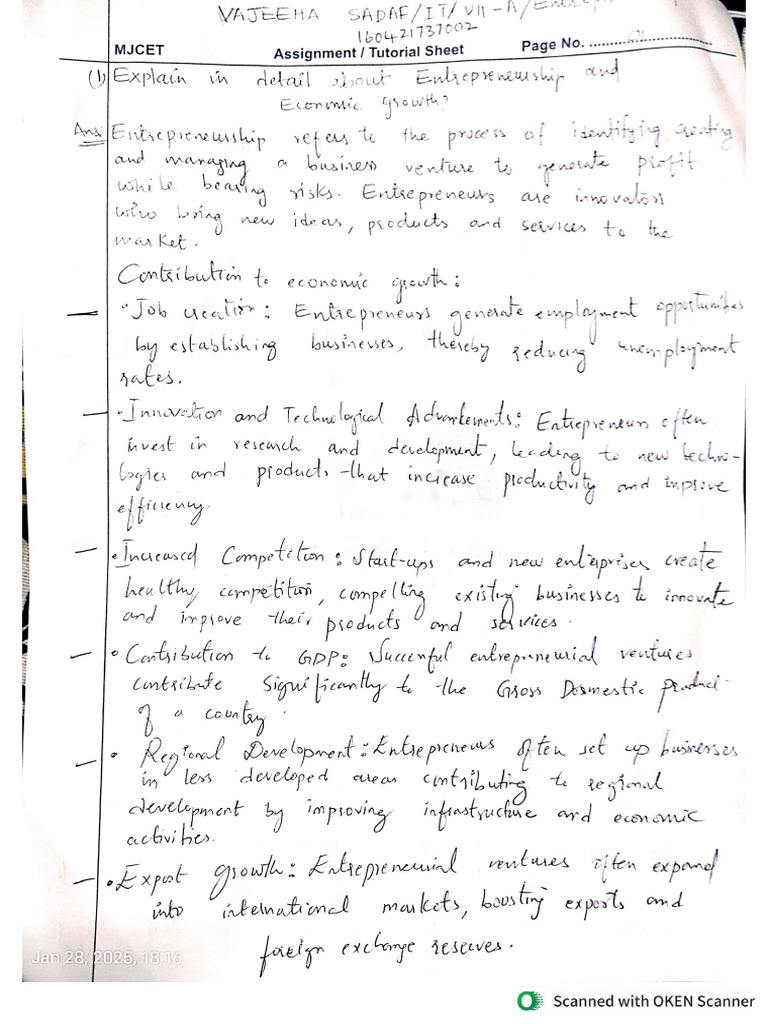 VAJEEHA SADAF/IT/VII-A/Entrep
160421737002
MJCET Assignment / Tutorial Sheet Page No. .......01.......
(1) Explain in detail about Entrepreneurship and
Economic Growth?
Ans: Entrepreneurship refers to the process of identifying, creating
and managing a business venture to generate profit
while bearing risks. Entrepreneurs are innovators
who bring new ideas, products and services to the
market.
Contribution to economic growth:
• Job creation: Entrepreneurs generate employment opportunities
by establishing businesses, thereby reducing unemployment
rates.
• Innovation and Technological Advantements: Entrepreneurs often
invest in research and development, leading to new techno-
logies and products that increase productivity and improve
efficiency.
• Increased Competition: Start-ups and new enterprises create
healthy competition, compelling existing businesses to innovate
and improve their products and services.
• Contribution to GDP: Successful entrepreneurial ventures
contribute significantly to the Gross Dosmestic product
of a country.
• Regional Development: Entrepreneurs often set up businesses
in less developed areas contributing to regional
development by improving infrastructure and economic
activities.
• Export growth: Entrepreneurial ventures often expand
into international markets, boosting exports and
foreign exchange reserves.
Jan 28, 2025, 18:16
Scanned with OKEN Scanner